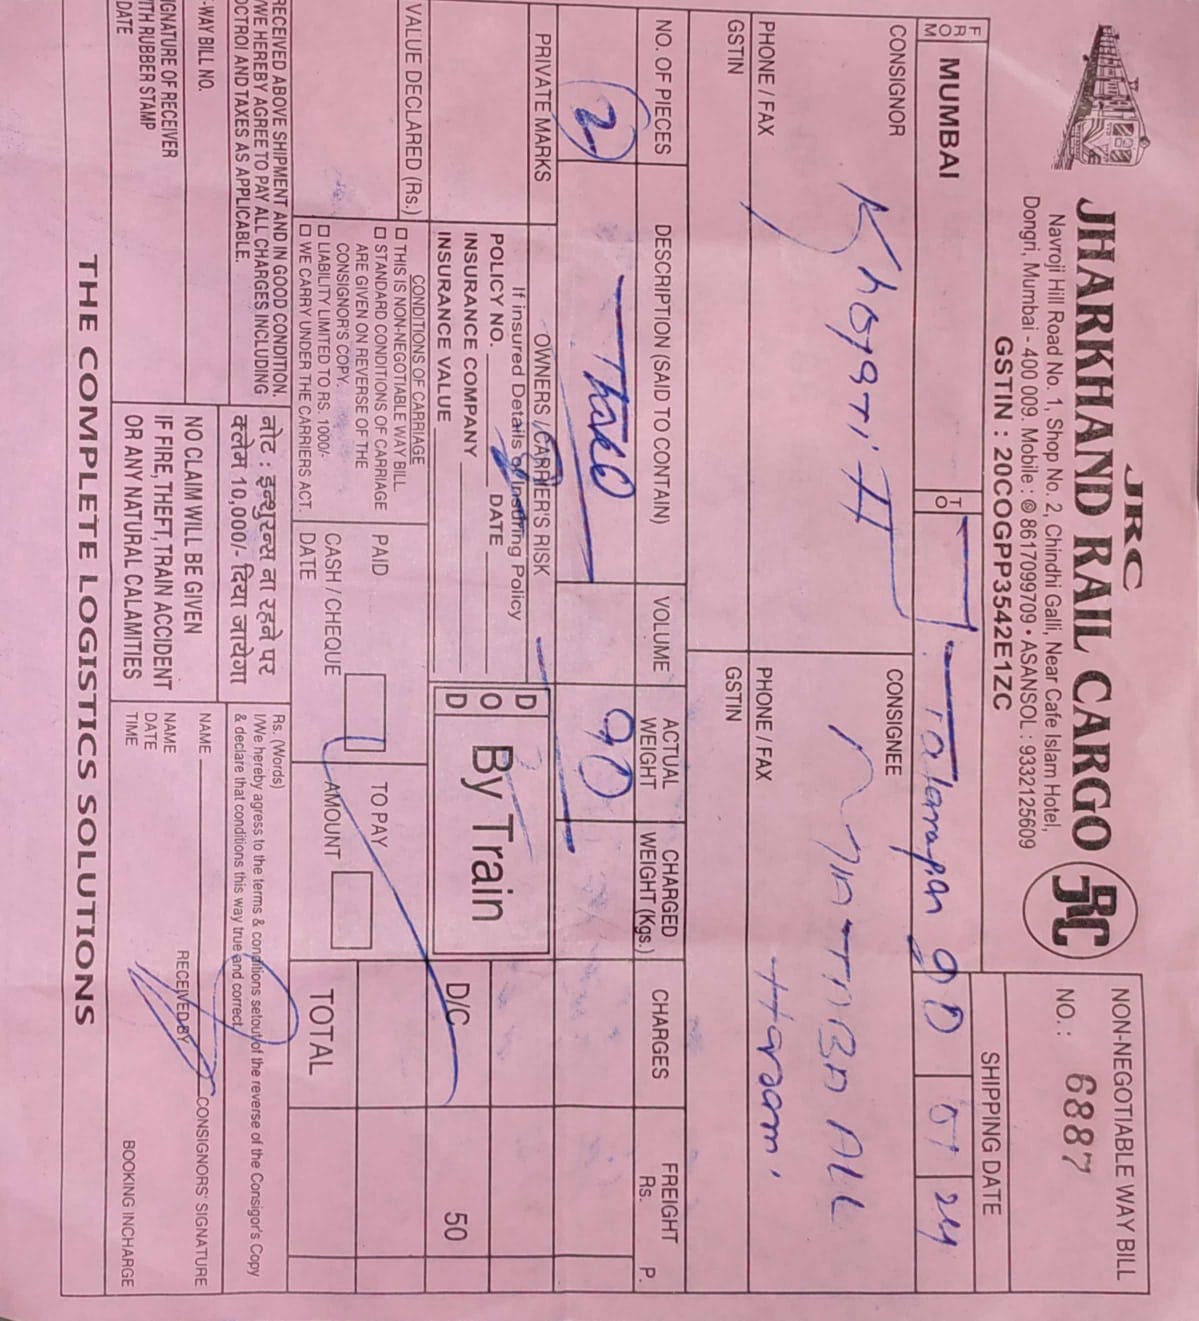 JRC
JHARKHAND RAIL CARGO
JRC
Navroji Hill Road No. 1, Shop No. 2, Chindhi Galli, Near Cafe Islam Hotel,
Dongri, Mumbai - 400 009. Mobile : 8617099709 • ASANSOL : 9332125609
GSTIN : 20COGPP3542E1ZC
NON-NEGOTIABLE WAY BILL
NO. : 6887
SHIPPING DATE
FROM MUMBAI
TO
24
CONSIGNOR
CONSIGNEE
ALL
PHONE / FAX
PHONE / FAX
GSTIN
GSTIN
NO. OF PIECES
DESCRIPTION (SAID TO CONTAIN)
VOLUME
ACTUAL WEIGHT
CHARGED WEIGHT (Kgs.)
CHARGES
FREIGHT
Rs. P.
2
90
PRIVATE MARKS
OWNERS / CARRIER'S RISK
If insured Details of Insuring Policy
POLICY NO. DATE
INSURANCE COMPANY
INSURANCE VALUE
DOD
By Train
D/C 50
VALUE DECLARED (Rs.)
CONDITIONS OF CARRIAGE
THIS IS NON-NEGOTIABLE WAY BILL
STANDARD CONDITIONS OF CARRIAGE
ARE GIVEN ON REVERSE OF THE
CONSIGNOR'S COPY.
LIABILITY LIMITED TO RS. 1000/-
WE CARRY UNDER THE CARRIERS ACT.
PAID
TO PAY
CASH / CHEQUE
AMOUNT
DATE
TOTAL
RECEIVED ABOVE SHIPMENT AND IN GOOD CONDITION.
/WE HEREBY AGREE TO PAY ALL CHARGES INCLUDING
OCTROI AND TAXES AS APPLICABLE.
नोट : इन्शुरन्स ना रहने पर
क्लेम 10,000/- दिया जायेगा
Rs. (Words)
I/We hereby agress to the terms & conditions setout of the reverse of the Consigor's Copy
& declare that conditions this way true and correct.
-WAY BILL NO.
IGNATURE OF RECEIVER
ITH RUBBER STAMP
DATE
NO CLAIM WILL BE GIVEN
IF FIRE, THEFT, TRAIN ACCIDENT
OR ANY NATURAL CALAMITIES
NAME
CONSIGNORS' SIGNATURE
NAME
RECEIVED BY
DATE
TIME
BOOKING INCHARGE
THE COMPLETE LOGISTICS SOLUTIONS